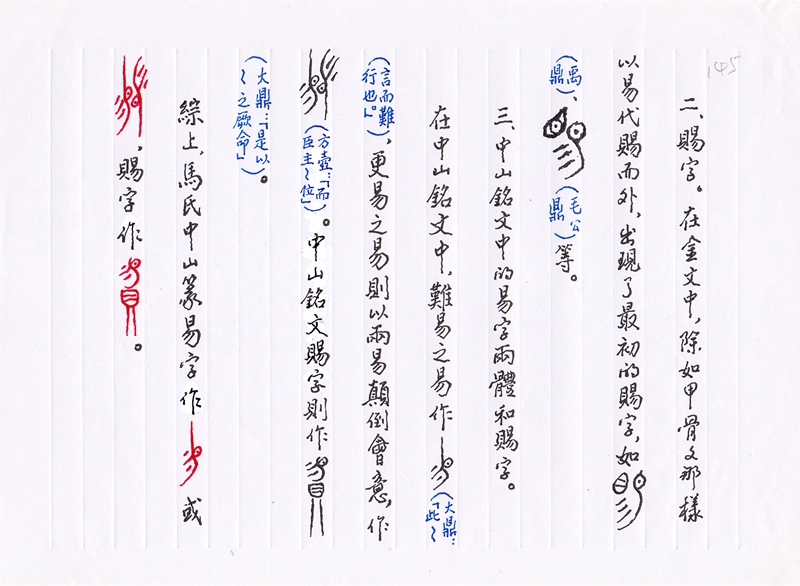 145
二、賜字。在金文中，除如甲骨文那樣
以易代賜而外，出現了最初的賜字，如
(禹鼎)、(毛公鼎)等。
三、中山銘文中的易字兩體和賜字。
在中山銘文中，難易之易作(大鼎：「此~
言而難行也。」)，更易之易則以兩易顛倒會意，作
(方壺：「而臣主~位」)。中山銘文賜字則作
(大鼎：「是以~之厥命」)。
綜上，馬氏中山篆易字作或
，賜字作。